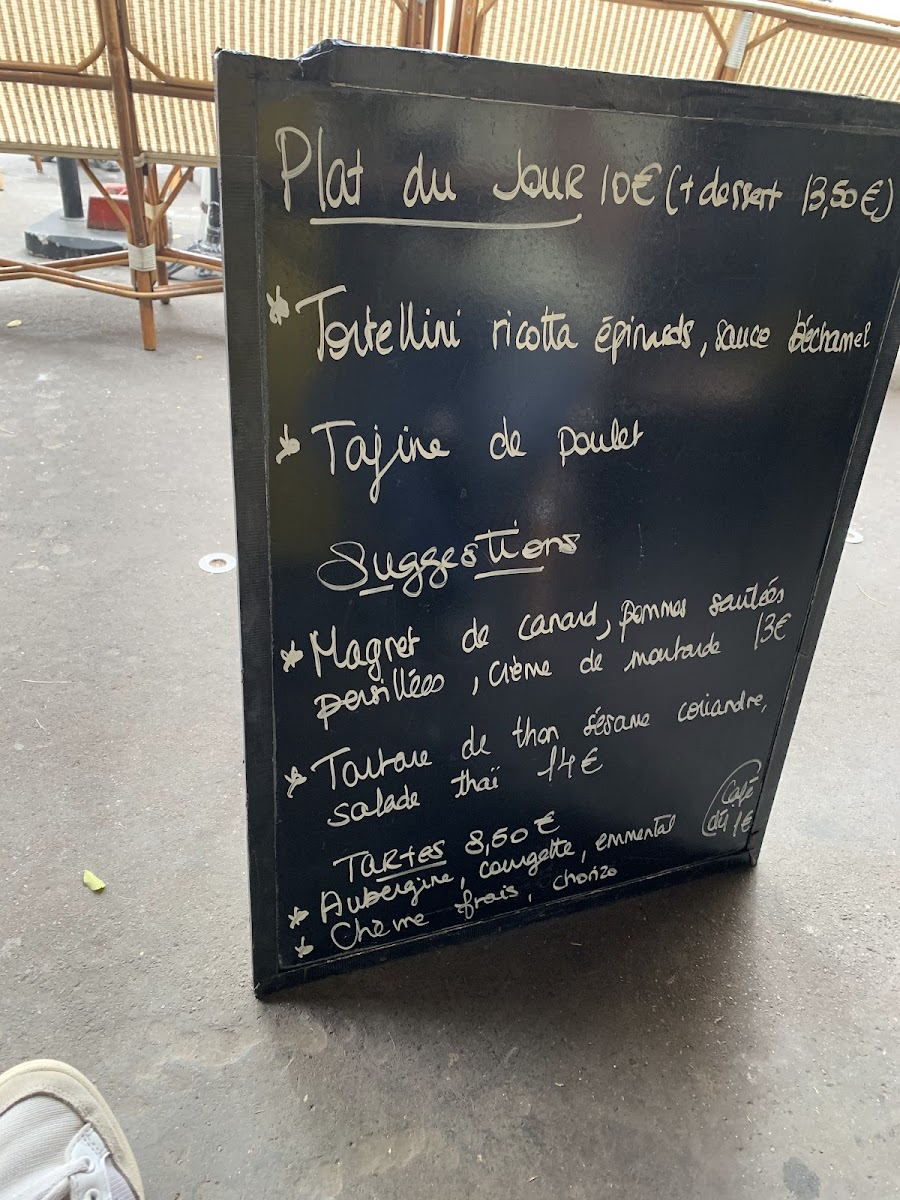 Plat du Jour 10€ (+ dessert 13,50€)
* Tortellini ricotta épinards, sauce béchamel
* Tajine de poulet
Suggestions
* Magret de canard, pommes sautées
persillées, crème de moutarde 13€
* Tartare de thon sésame coriandre,
salade thaï 14€
Café
TARTES 8,50€
* Aubergine, courgette, emmental
* Chèvre frais, chorizo